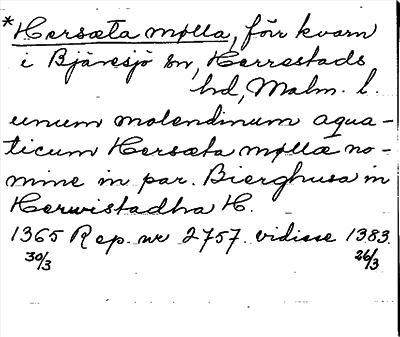 *Hersæta mølla, förr kvarn
i Bjäresjö sn, Herrestads
hd, Malm. l.
unum molendinum aqua-
ticum Hersæta møllæ no-
mine in par. Bierghusa in
Herwistadha H.
1365 Rep. nr 2757. vidisse 1383.
30/3 26/3